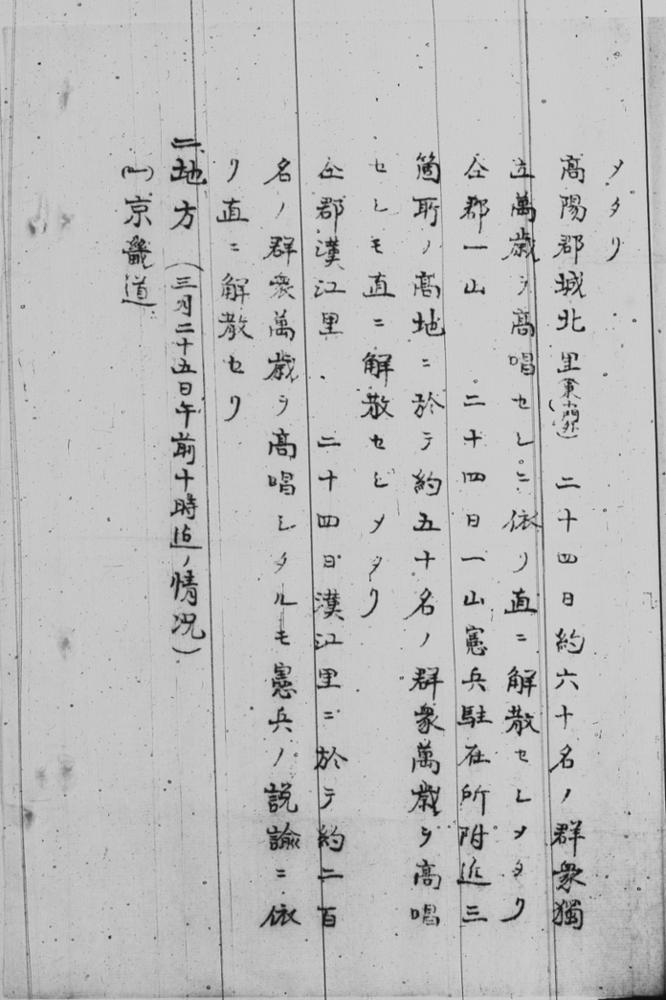 メタリ
高陽郡城北里(東小門外) 二十四日約六十名ノ群衆獨
立萬歳ヲ高唱セシニ依リ直ニ解散セシメタリ
仝郡一山 二十四日一山憲兵駐在所附近三
箇所ノ高地ニ於テ約五十名ノ群衆萬歳ヲ高唱
セシモ直ニ解散セシメタリ
仝郡漢江里、 二十四日漢江里ニ於テ約二百
名ノ群衆萬歳ヲ高唱シタルモ憲兵ノ説諭ニ依
リ直ニ解散セリ
二地方(三月二十五日午前十時迄ノ情况)
(一)京畿道